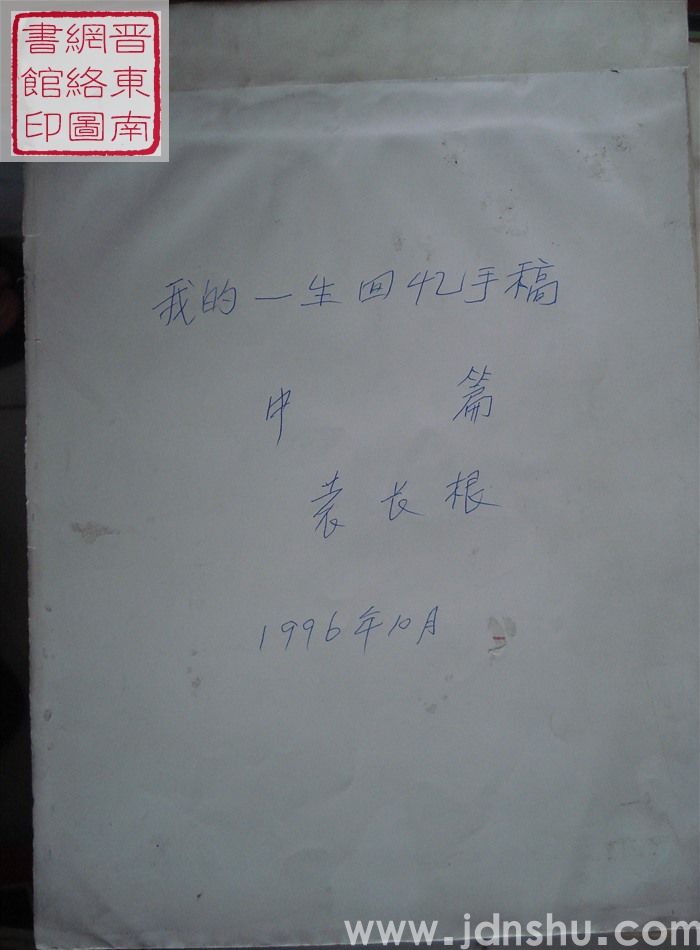 晋東南
網絡圖
書館印
我的一生回忆手稿
中 篇
袁长根
1996年10月
www.jdnshu.com